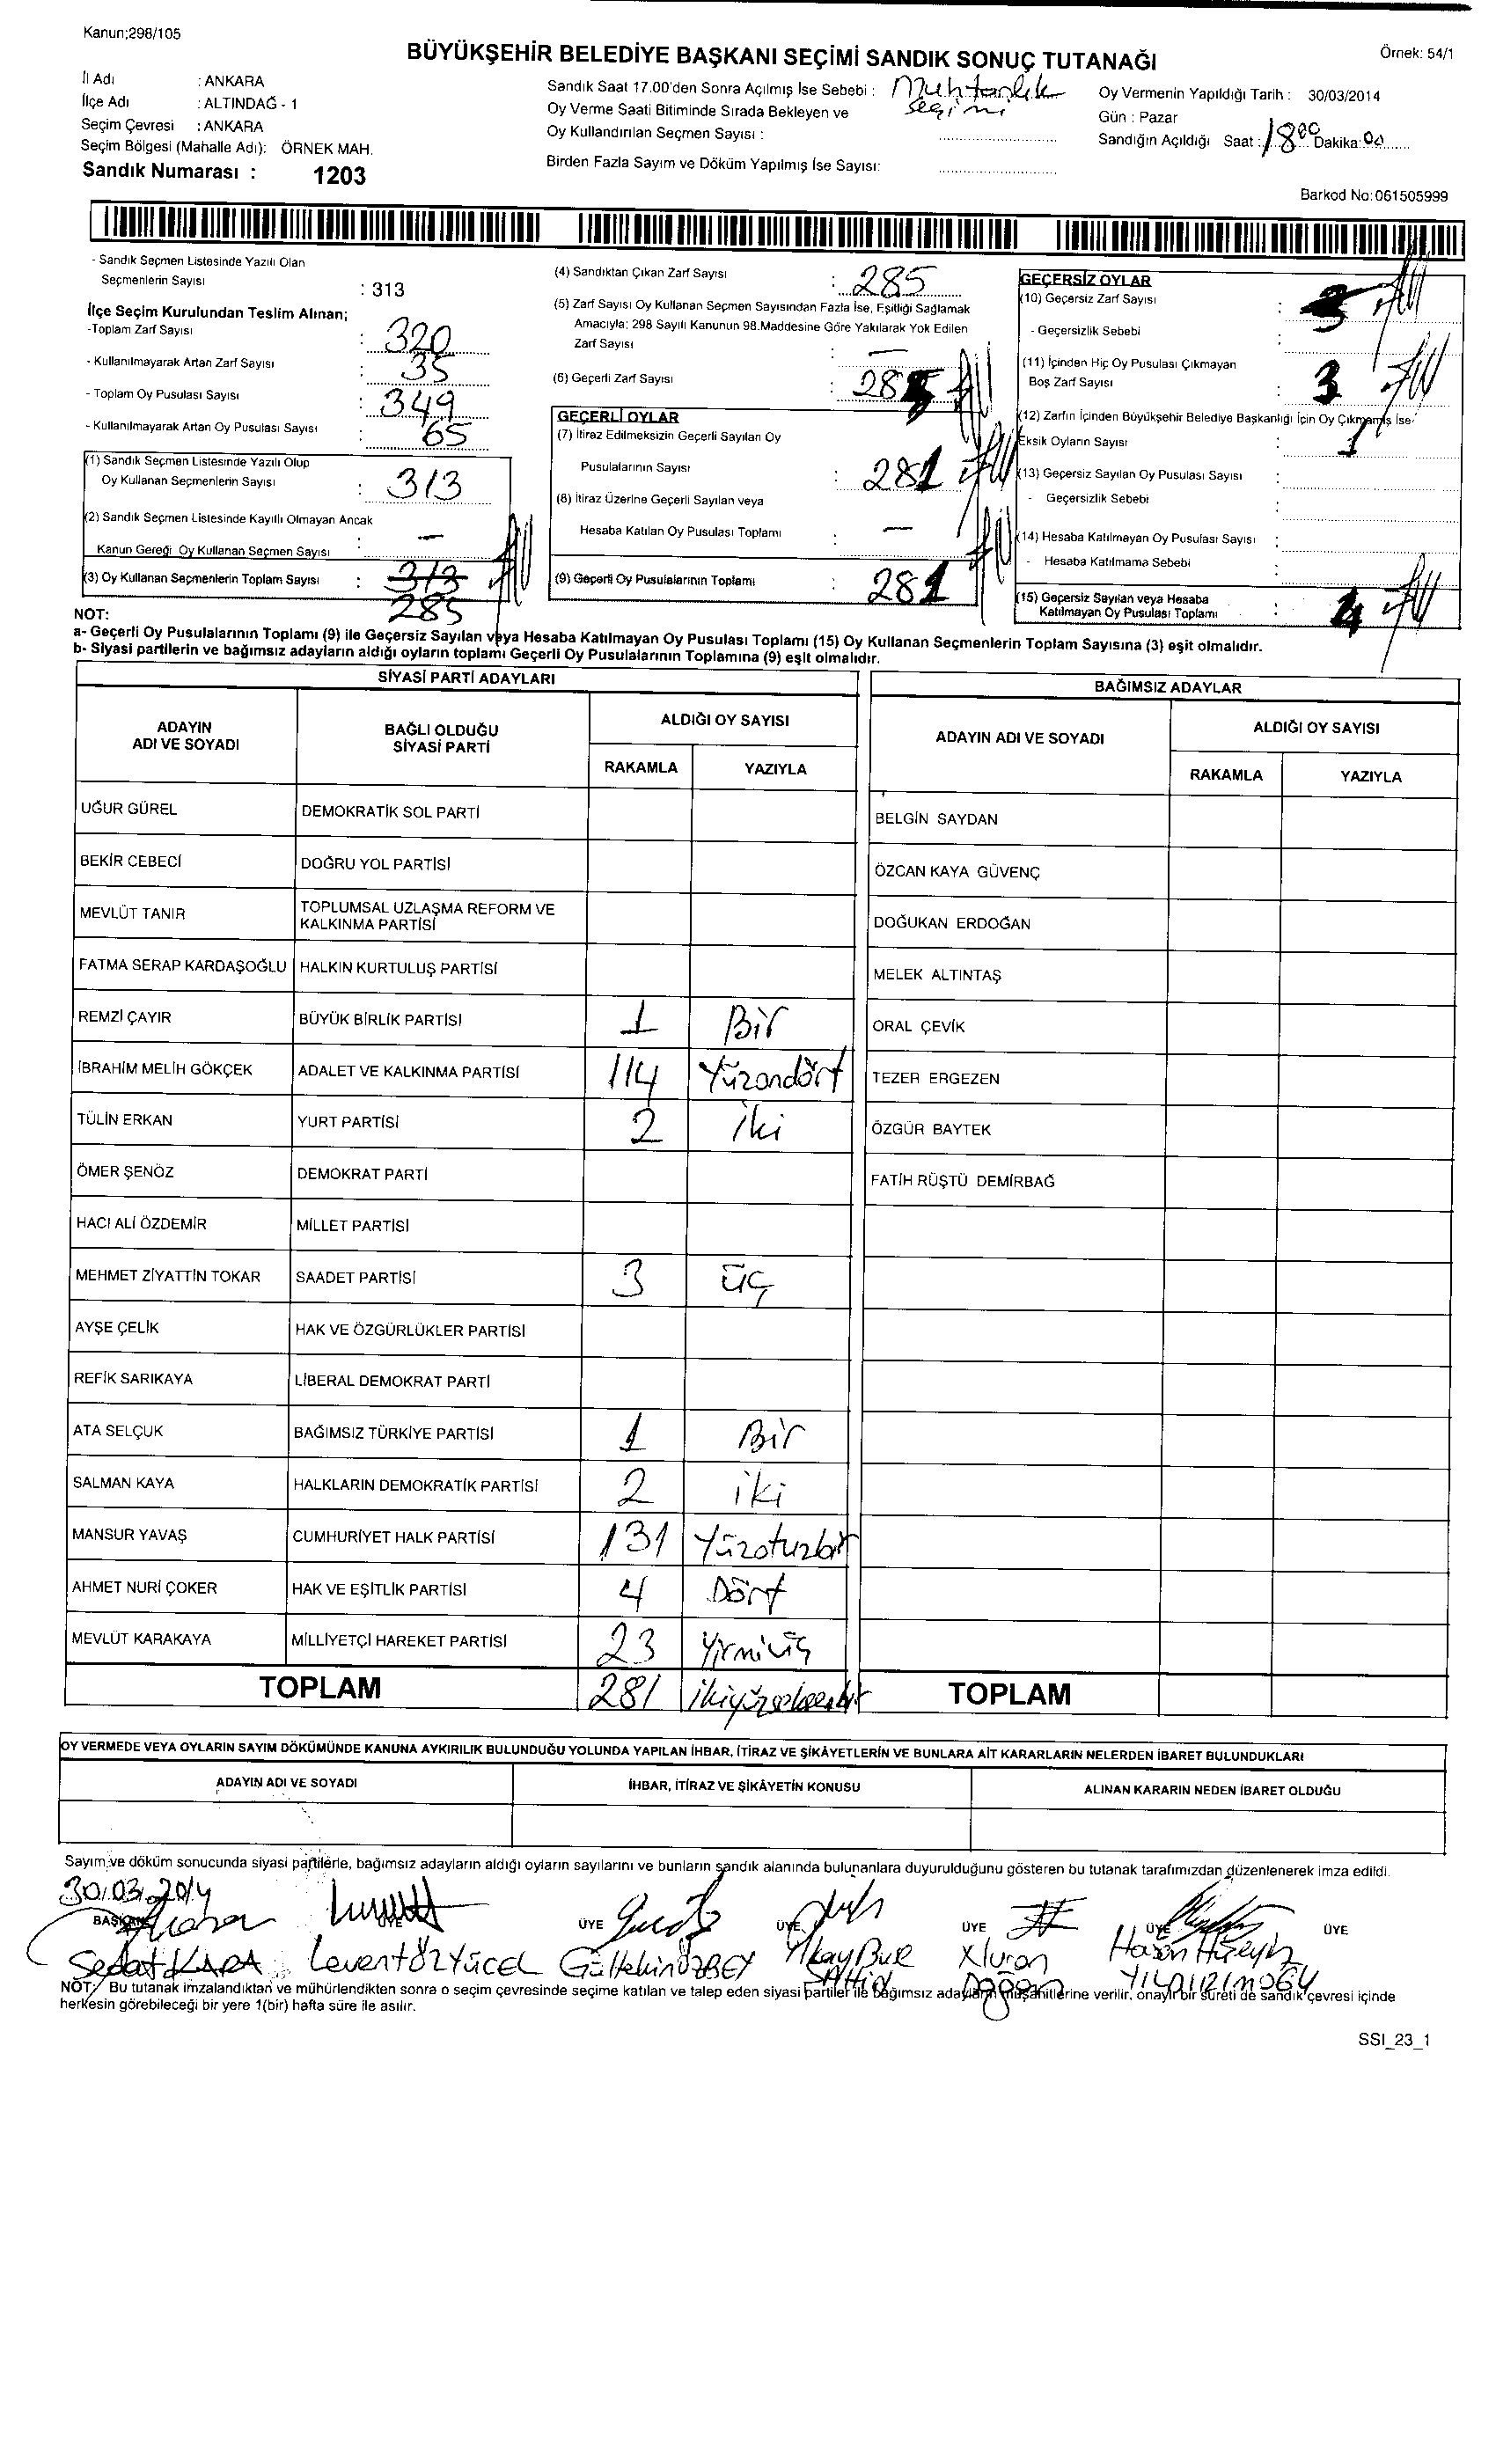 Kanun;298/105
BÜYÜKŞEHİR BELEDİYE BAŞKANI SEÇİMİ SANDIK SONUÇ TUTANAĞI
Örnek: 54/1
İl Adı : ANKARA
İlçe Adı : ALTINDAĞ - 1
Seçim Çevresi : ANKARA
Seçim Bölgesi (Mahalle Adı): ÖRNEK MAH.
Sandık Numarası : 1203
Sandık Saat 17.00'den Sonra Açılmış İse Sebebi : Muhtarlık seçimi
Oy Verme Saati Bitiminde Sırada Bekleyen ve
Oy Kullandırılan Seçmen Sayısı :
Birden Fazla Sayım ve Döküm Yapılmış İse Sayısı:
Oy Vermenin Yapıldığı Tarih : 30/03/2014
Gün : Pazar
Sandığın Açıldığı Saat : 18 00 Dakika: 00
Barkod No:061505999
- Sandık Seçmen Listesinde Yazılı Olan
Seçmenlerin Sayısı : 313
İlçe Seçim Kurulundan Teslim Alınan;
-Toplam Zarf Sayısı : 320
- Kullanılmayarak Artan Zarf Sayısı : 35
- Toplam Oy Pusulası Sayısı : 349
- Kullanılmayarak Artan Oy Pusulası Sayısı : 65
(1) Sandık Seçmen Listesinde Yazılı Olup
Oy Kullanan Seçmenlerin Sayısı : 313
(2) Sandık Seçmen Listesinde Kayıtlı Olmayan Ancak
Kanun Gereği Oy Kullanan Seçmen Sayısı : -
(3) Oy Kullanan Seçmenlerin Toplam Sayısı : 313
285
(4) Sandıktan Çıkan Zarf Sayısı : 285
(5) Zarf Sayısı Oy Kullanan Seçmen Sayısından Fazla İse, Eşitliği Sağlamak
Amacıyla; 298 Sayılı Kanunun 98.Maddesine Göre Yakılarak Yok Edilen
Zarf Sayısı : -
(6) Geçerli Zarf Sayısı :
GEÇERLİ OYLAR
(7) İtiraz Edilmeksizin Geçerli Sayılan Oy
Pusulalarının Sayısı : 281
(8) İtiraz Üzerine Geçerli Sayılan veya
Hesaba Katılan Oy Pusulası Toplamı : -
(9) Geçerli Oy Pusulalarının Toplamı : 281
GEÇERSİZ OYLAR
(10) Geçersiz Zarf Sayısı :
- Geçersizlik Sebebi :
(11) İçinden Hiç Oy Pusulası Çıkmayan
Boş Zarf Sayısı : 3
(12) Zarfın İçinden Büyükşehir Belediye Başkanlığı İçin Oy Çıkmamış İse
Eksik Oyların Sayısı : 1
(13) Geçersiz Sayılan Oy Pusulası Sayısı :
- Geçersizlik Sebebi :
(14) Hesaba Katılmayan Oy Pusulası Sayısı :
- Hesaba Katılmama Sebebi :
(15) Geçersiz Sayılan veya Hesaba
Katılmayan Oy Pusulası Toplamı : 4
NOT:
a- Geçerli Oy Pusulalarının Toplamı (9) ile Geçersiz Sayılan veya Hesaba Katılmayan Oy Pusulası Toplamı (15) Oy Kullanan Seçmenlerin Toplam Sayısına (3) eşit olmalıdır.
b- Siyasi partilerin ve bağımsız adayların aldığı oyların toplamı Geçerli Oy Pusulalarının Toplamına (9) eşit olmalıdır.
SİYASİ PARTİ ADAYLARI
ADAYIN ADI VE SOYADI
BAĞLI OLDUĞU SİYASİ PARTİ
ALDIĞI OY SAYISI
RAKAMLA YAZIYLA
UĞUR GÜREL DEMOKRATİK SOL PARTİ
BEKİR CEBECİ DOĞRU YOL PARTİSİ
MEVLÜT TANIR TOPLUMSAL UZLAŞMA REFORM VE KALKINMA PARTİSİ
FATMA SERAP KARDAŞOĞLU HALKIN KURTULUŞ PARTİSİ
REMZİ ÇAYIR BÜYÜK BİRLİK PARTİSİ 1 Bir
İBRAHİM MELİH GÖKÇEK ADALET VE KALKINMA PARTİSİ 114 Yüzondört
TÜLİN ERKAN YURT PARTİSİ 2 İki
ÖMER ŞENÖZ DEMOKRAT PARTİ
HACI ALİ ÖZDEMİR MİLLET PARTİSİ
MEHMET ZİYATTİN TOKAR SAADET PARTİSİ 3 üç
AYŞE ÇELİK HAK VE ÖZGÜRLÜKLER PARTİSİ
REFİK SARIKAYA LİBERAL DEMOKRAT PARTİ
ATA SELÇUK BAĞIMSIZ TÜRKİYE PARTİSİ 1 Bir
SALMAN KAYA HALKLARIN DEMOKRATİK PARTİSİ 2 iki
MANSUR YAVAŞ CUMHURİYET HALK PARTİSİ 131 Yüzotuzbir
AHMET NURİ ÇOKER HAK VE EŞİTLİK PARTİSİ 4 Dört
MEVLÜT KARAKAYA MİLLİYETÇİ HAREKET PARTİSİ 23 Yirmiüç
TOPLAM 281 İkiyüzseksenbir
BAĞIMSIZ ADAYLAR
ADAYIN ADI VE SOYADI
ALDIĞI OY SAYISI
RAKAMLA YAZIYLA
BELGİN SAYDAN
ÖZCAN KAYA GÜVENÇ
DOĞUKAN ERDOĞAN
MELEK ALTINTAŞ
ORAL ÇEVİK
TEZER ERGEZEN
ÖZGÜR BAYTEK
FATİH RÜŞTÜ DEMİRBAĞ
TOPLAM
OY VERMEDE VEYA OYLARIN SAYIM DÖKÜMÜNDE KANUNA AYKIRILIK BULUNDUĞU YOLUNDA YAPILAN İHBAR, İTİRAZ VE ŞİKÂYETLERİN VE BUNLARA AİT KARARLARIN NELERDEN İBARET BULUNDUKLARI
ADAYIN ADI VE SOYADI İHBAR, İTİRAZ VE ŞİKÂYETİN KONUSU ALINAN KARARIN NEDEN İBARET OLDUĞU
Sayım ve döküm sonucunda siyasi partilerle, bağımsız adayların aldığı oyların sayılarını ve bunların sandık alanında bulunanlara duyurulduğunu gösteren bu tutanak tarafımızdan düzenlenerek imza edildi.
30.03.2014
BAŞKAN ÜYE ÜYE ÜYE ÜYE ÜYE ÜYE
Sedat KARA Levent ÖZYÜCEL Gültekin ÖZBEY Doğan Hasan Hüseyin
NOT: Bu tutanak imzalandıktan ve mühürlendikten sonra o seçim çevresinde seçime katılan ve talep eden siyasi partiler ile bağımsız adayların müşahitlerine verilir, onaylı bir sureti de sandık çevresi içinde
herkesin görebileceği bir yere 1(bir) hafta süre ile asılır.
SSI_23_1